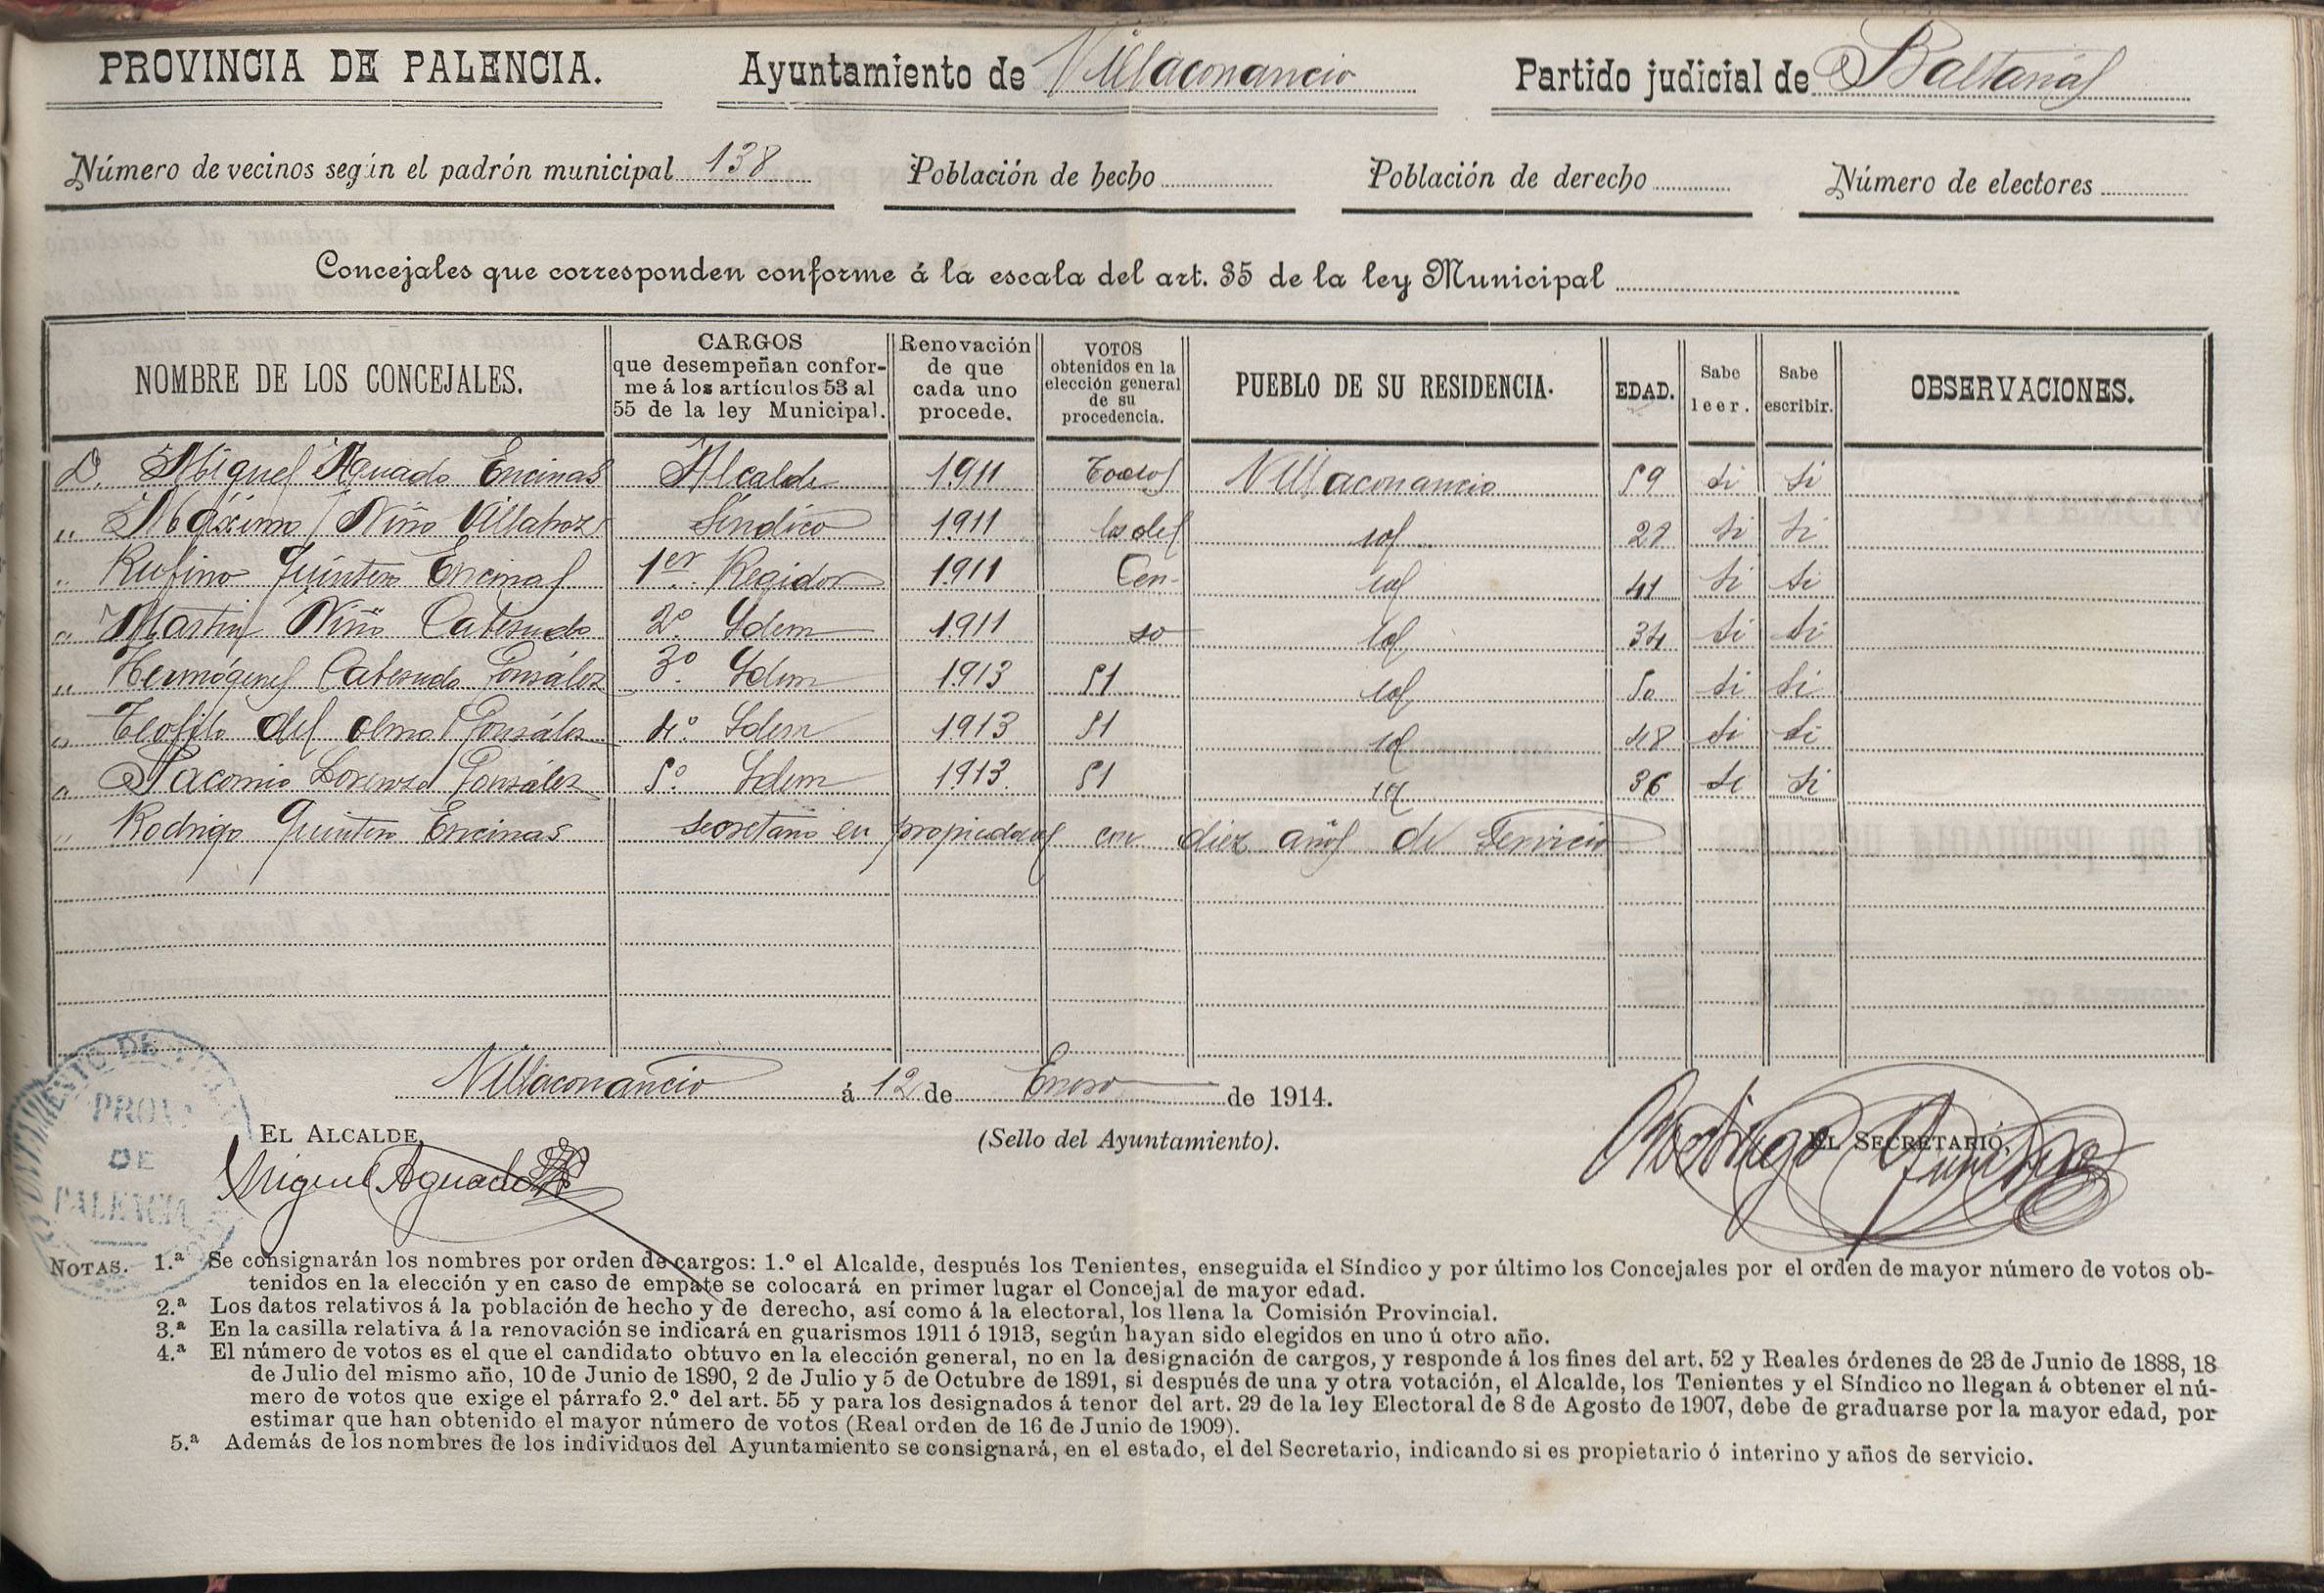 PROVINCIA DE PALENCIA. Ayuntamiento de Villaconancio Partido judicial de Baltanás
Número de vecinos según el padrón municipal 138 Población de hecho Población de derecho Número de electores
Concejales que corresponden conforme á la escala del art. 35 de la ley Municipal
NOMBRE DE LOS CONCEJALES. CARGOS que desempeñan conforme á los artículos 53 al 55 de la ley Municipal. Renovación de que cada uno procede. VOTOS obtenidos en la elección general de su procedencia. PUEBLO DE SU RESIDENCIA. EDAD. Sabe leer. Sabe escribir. OBSERVACIONES.
D. Miguel Aguado Encinas Alcalde 1911 Todos Villaconancio 59 si si
„ Máximo Niño Villahoz Síndico 1911 los del id 28 si si
„ Rufino Quintero Encinas 1er Regidor 1911 Cen- id 41 si si
„ Martin Niño Cabezudo 2º Idem 1911 so id 34 si si
„ Hermógenes Cabezudo González 3º Idem 1913 51 id 50 si si
„ Teofilo del Olmo González 4º Idem 1913 51 id 48 si si
„ Pacomio Lorenzo González 5º Idem 1913 51 id 36 si si
„ Rodrigo Quintero Encinas secretario en propiedad con diez años de servicio
Villaconancio á 12 de Enero de 1914.
EL ALCALDE, (Sello del Ayuntamiento). EL SECRETARIO,
Miguel Aguado Rodrigo Quintero
AYUNTAMIENTO DE
PROVª
DE
PALENCIA
NOTAS. 1.ª Se consignarán los nombres por orden de cargos: 1.º el Alcalde, después los Tenientes, enseguida el Síndico y por último los Concejales por el orden de mayor número de votos ob-
tenidos en la elección y en caso de empate se colocará en primer lugar el Concejal de mayor edad.
2.ª Los datos relativos á la población de hecho y de derecho, así como á la electoral, los llena la Comisión Provincial.
3.ª En la casilla relativa á la renovación se indicará en guarismos 1911 ó 1913, según hayan sido elegidos en uno ú otro año.
4.ª El número de votos es el que el candidato obtuvo en la elección general, no en la designación de cargos, y responde á los fines del art. 52 y Reales órdenes de 23 de Junio de 1888, 18
de Julio del mismo año, 10 de Junio de 1890, 2 de Julio y 5 de Octubre de 1891, si después de una y otra votación, el Alcalde, los Tenientes y el Síndico no llegan á obtener el nú-
mero de votos que exige el párrafo 2.º del art. 55 y para los designados á tenor del art. 29 de la ley Electoral de 8 de Agosto de 1907, debe de graduarse por la mayor edad, por
estimar que han obtenido el mayor número de votos (Real orden de 16 de Junio de 1909).
5.ª Además de los nombres de los individuos del Ayuntamiento se consignará, en el estado, el del Secretario, indicando si es propietario ó interino y años de servicio.